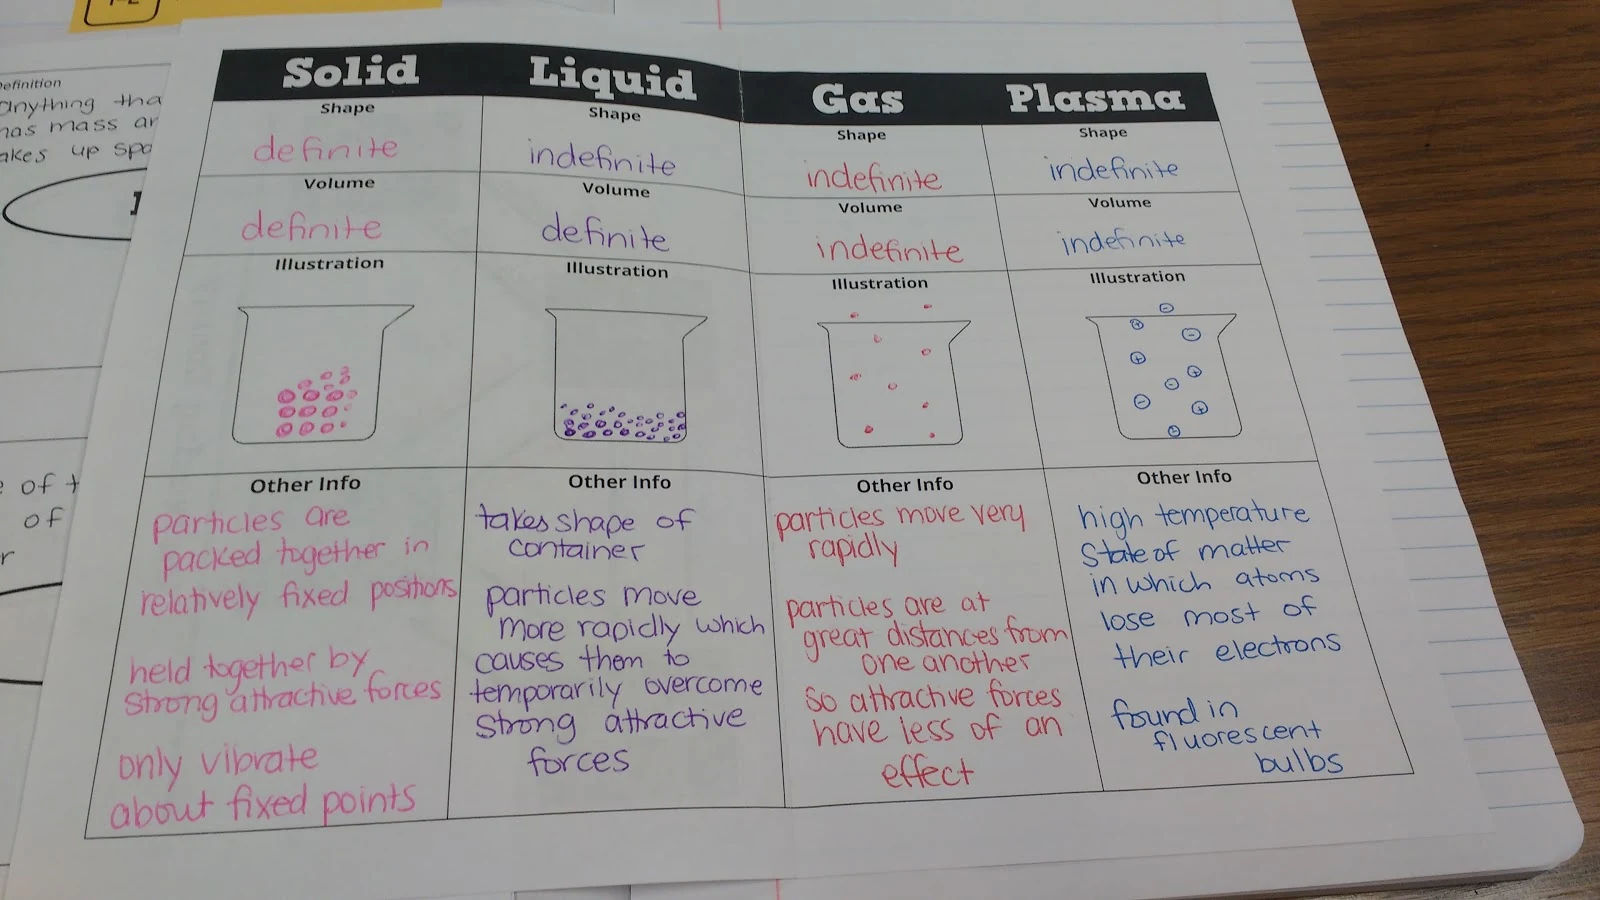 Definition
anything tha
has mass an
akes up spa
of t
of
Solid
Liquid
Gas
Plasma
Shape
definite
Shape
indefinite
Shape
indefinite
Shape
indefinite
Volume
definite
Volume
definite
Volume
indefinite
Volume
indefinite
Illustration
Illustration
Illustration
Illustration
Other Info
particles are
packed together in
relatively fixed positions
held together by
strong attractive forces
only vibrate
about fixed points
Other Info
takes shape of
container
particles move
more rapidly which
causes them to
temporarily overcome
strong attractive
forces
Other Info
particles move very
rapidly
particles are at
great distances from
one another
so attractive forces
have less of an
effect
Other Info
high temperature
state of matter
in which atoms
lose most of
their electrons
found in
fluorescent
bulbs